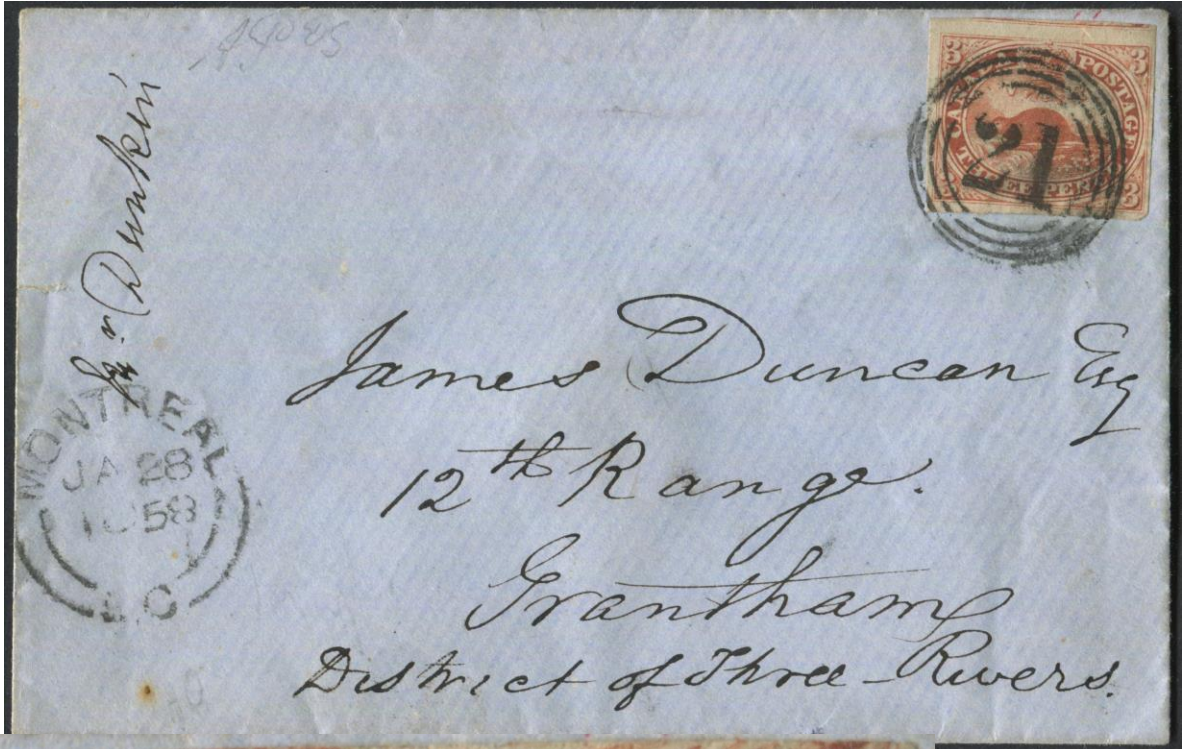 CANADA POSTAGE
THREE PENCE
3 3 3 3
21
Dunkin
MONTREAL
JA 28
1858
L.C
James Duncan Esq
12th Range.
Grantham
District of Three-Rivers.